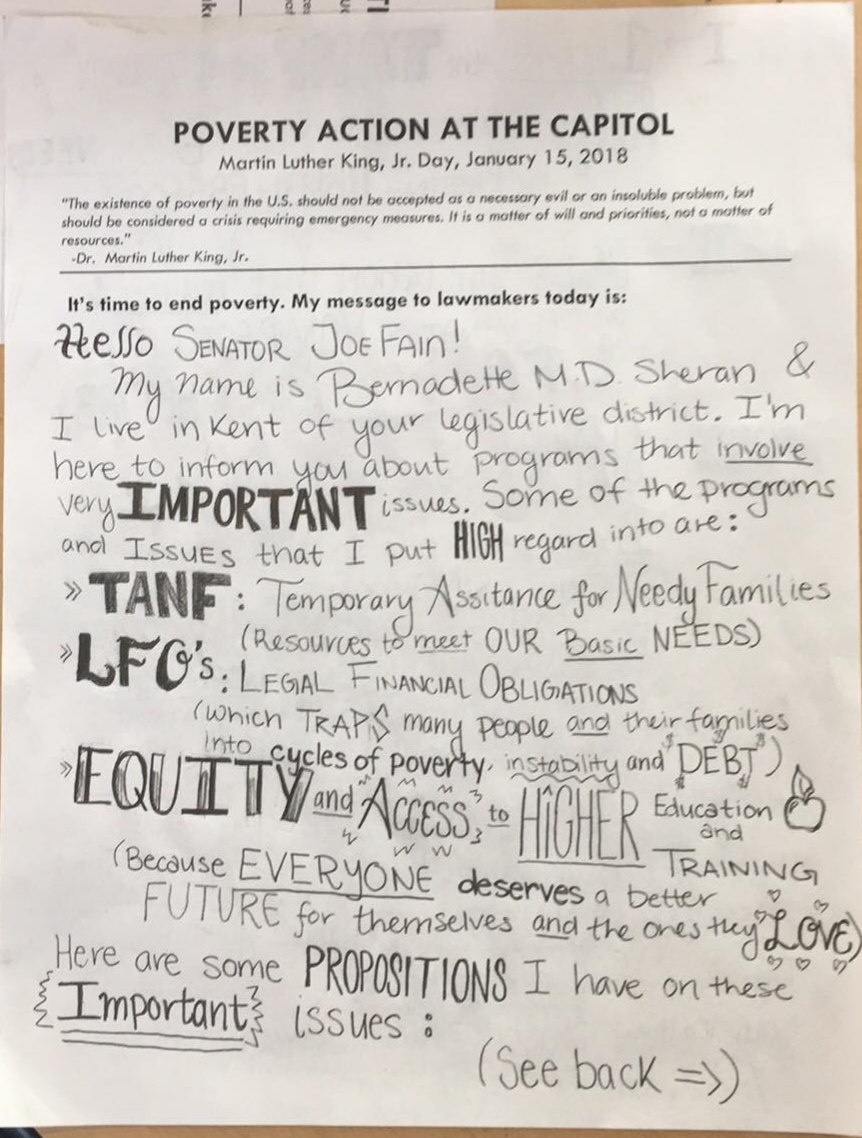 POVERTY ACTION AT THE CAPITOL
Martin Luther King, Jr. Day, January 15, 2018
"The existence of poverty in the U.S. should not be accepted as a necessary evil or an insoluble problem, but
should be considered a crisis requiring emergency measures. It is a matter of will and priorities, not a matter of
resources."
-Dr. Martin Luther King, Jr.
It's time to end poverty. My message to lawmakers today is:
Hello SENATOR JOE FAIN!
My name is Bernadette M.D. Sheran &
I live in Kent of your legislative district. I'm
here to inform you about programs that involve
very IMPORTANT issues. Some of the programs
and ISSUES that I put HIGH regard into are:
» TANF: Temporary Assitance for Needy Families
(Resources to meet OUR Basic NEEDS)
» LFO's: LEGAL FINANCIAL OBLIGATIONS
(which TRAP$ many people and their families
into cycles of poverty, instability and DEBT)
» EQUITY and ACCESS to HIGHER Education
and
TRAINING
(Because EVERYONE deserves a better
FUTURE for themselves and the ones they LOVE)
Here are some PROPOSITIONS I have on these
Important issues:
(See back =>)